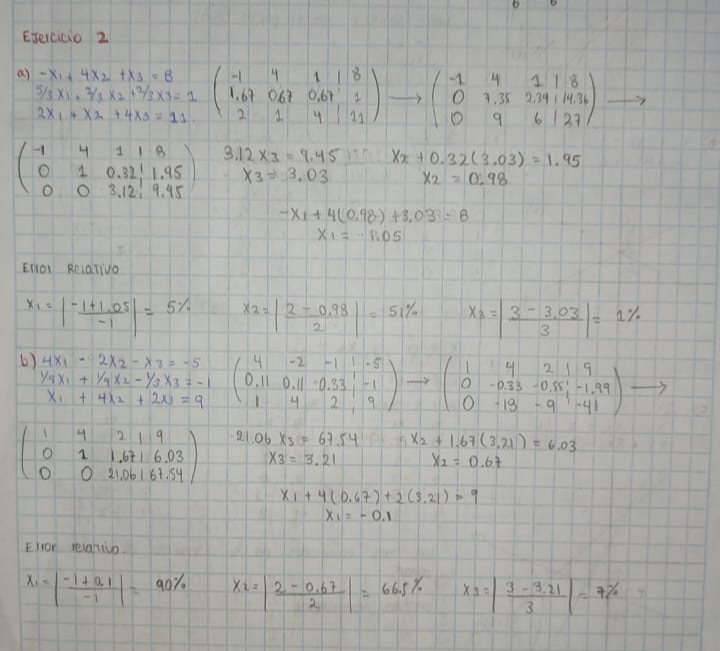 Ejercicio 2
a) -X1 + 4X2 + X3 = 8
5/3 X1 + 2/3 X2 + 2/3 X3 = 1
2X1 + X2 + 4X3 = 11
( -1 4 1 | 8 )
( 1.67 0.67 0.67 | 1 )
( 2 1 4 | 11 )
→
( -1 4 1 | 8 )
( 0 7.35 2.34 | 14.36 )
( 0 9 6 | 27 )
→
( -1 4 1 | 8 )
( 0 1 0.32 | 1.95 )
( 0 0 3.12 | 9.45 )
3.12 X3 = 9.45
X3 = 3.03
X2 + 0.32(3.03) = 1.95
X2 = 0.98
-X1 + 4(0.98) + 3.03 = 8
X1 = -1.05
Error Relativo
X1 = | -1+1.05 / -1 | = 5%
X2 = | 2 - 0.98 / 2 | = 51%
X3 = | 3 - 3.03 / 3 | = 1%
b) 4X1 - 2X2 - X3 = -5
1/9 X1 + 1/9 X2 - 1/3 X3 = -1
X1 + 4X2 + 2X3 = 9
( 4 -2 -1 | -5 )
( 0.11 0.11 -0.33 | -1 )
( 1 4 2 | 9 )
→
( 1 4 2 | 9 )
( 0 -0.33 -0.55 | -1.99 )
( 0 -18 -9 | -41 )
→
( 1 4 2 | 9 )
( 0 1 1.67 | 6.03 )
( 0 0 21.06 | 67.54 )
21.06 X3 = 67.54
X3 = 3.21
X2 + 1.67(3.21) = 6.03
X2 = 0.67
X1 + 4(0.67) + 2(3.21) = 9
X1 = -0.1
Error relativo.
X1 = | -1+0.1 / -1 | = 90%
X2 = | 2 - 0.67 / 2 | = 66.5%
X3 = | 3 - 3.21 / 3 | = 7%